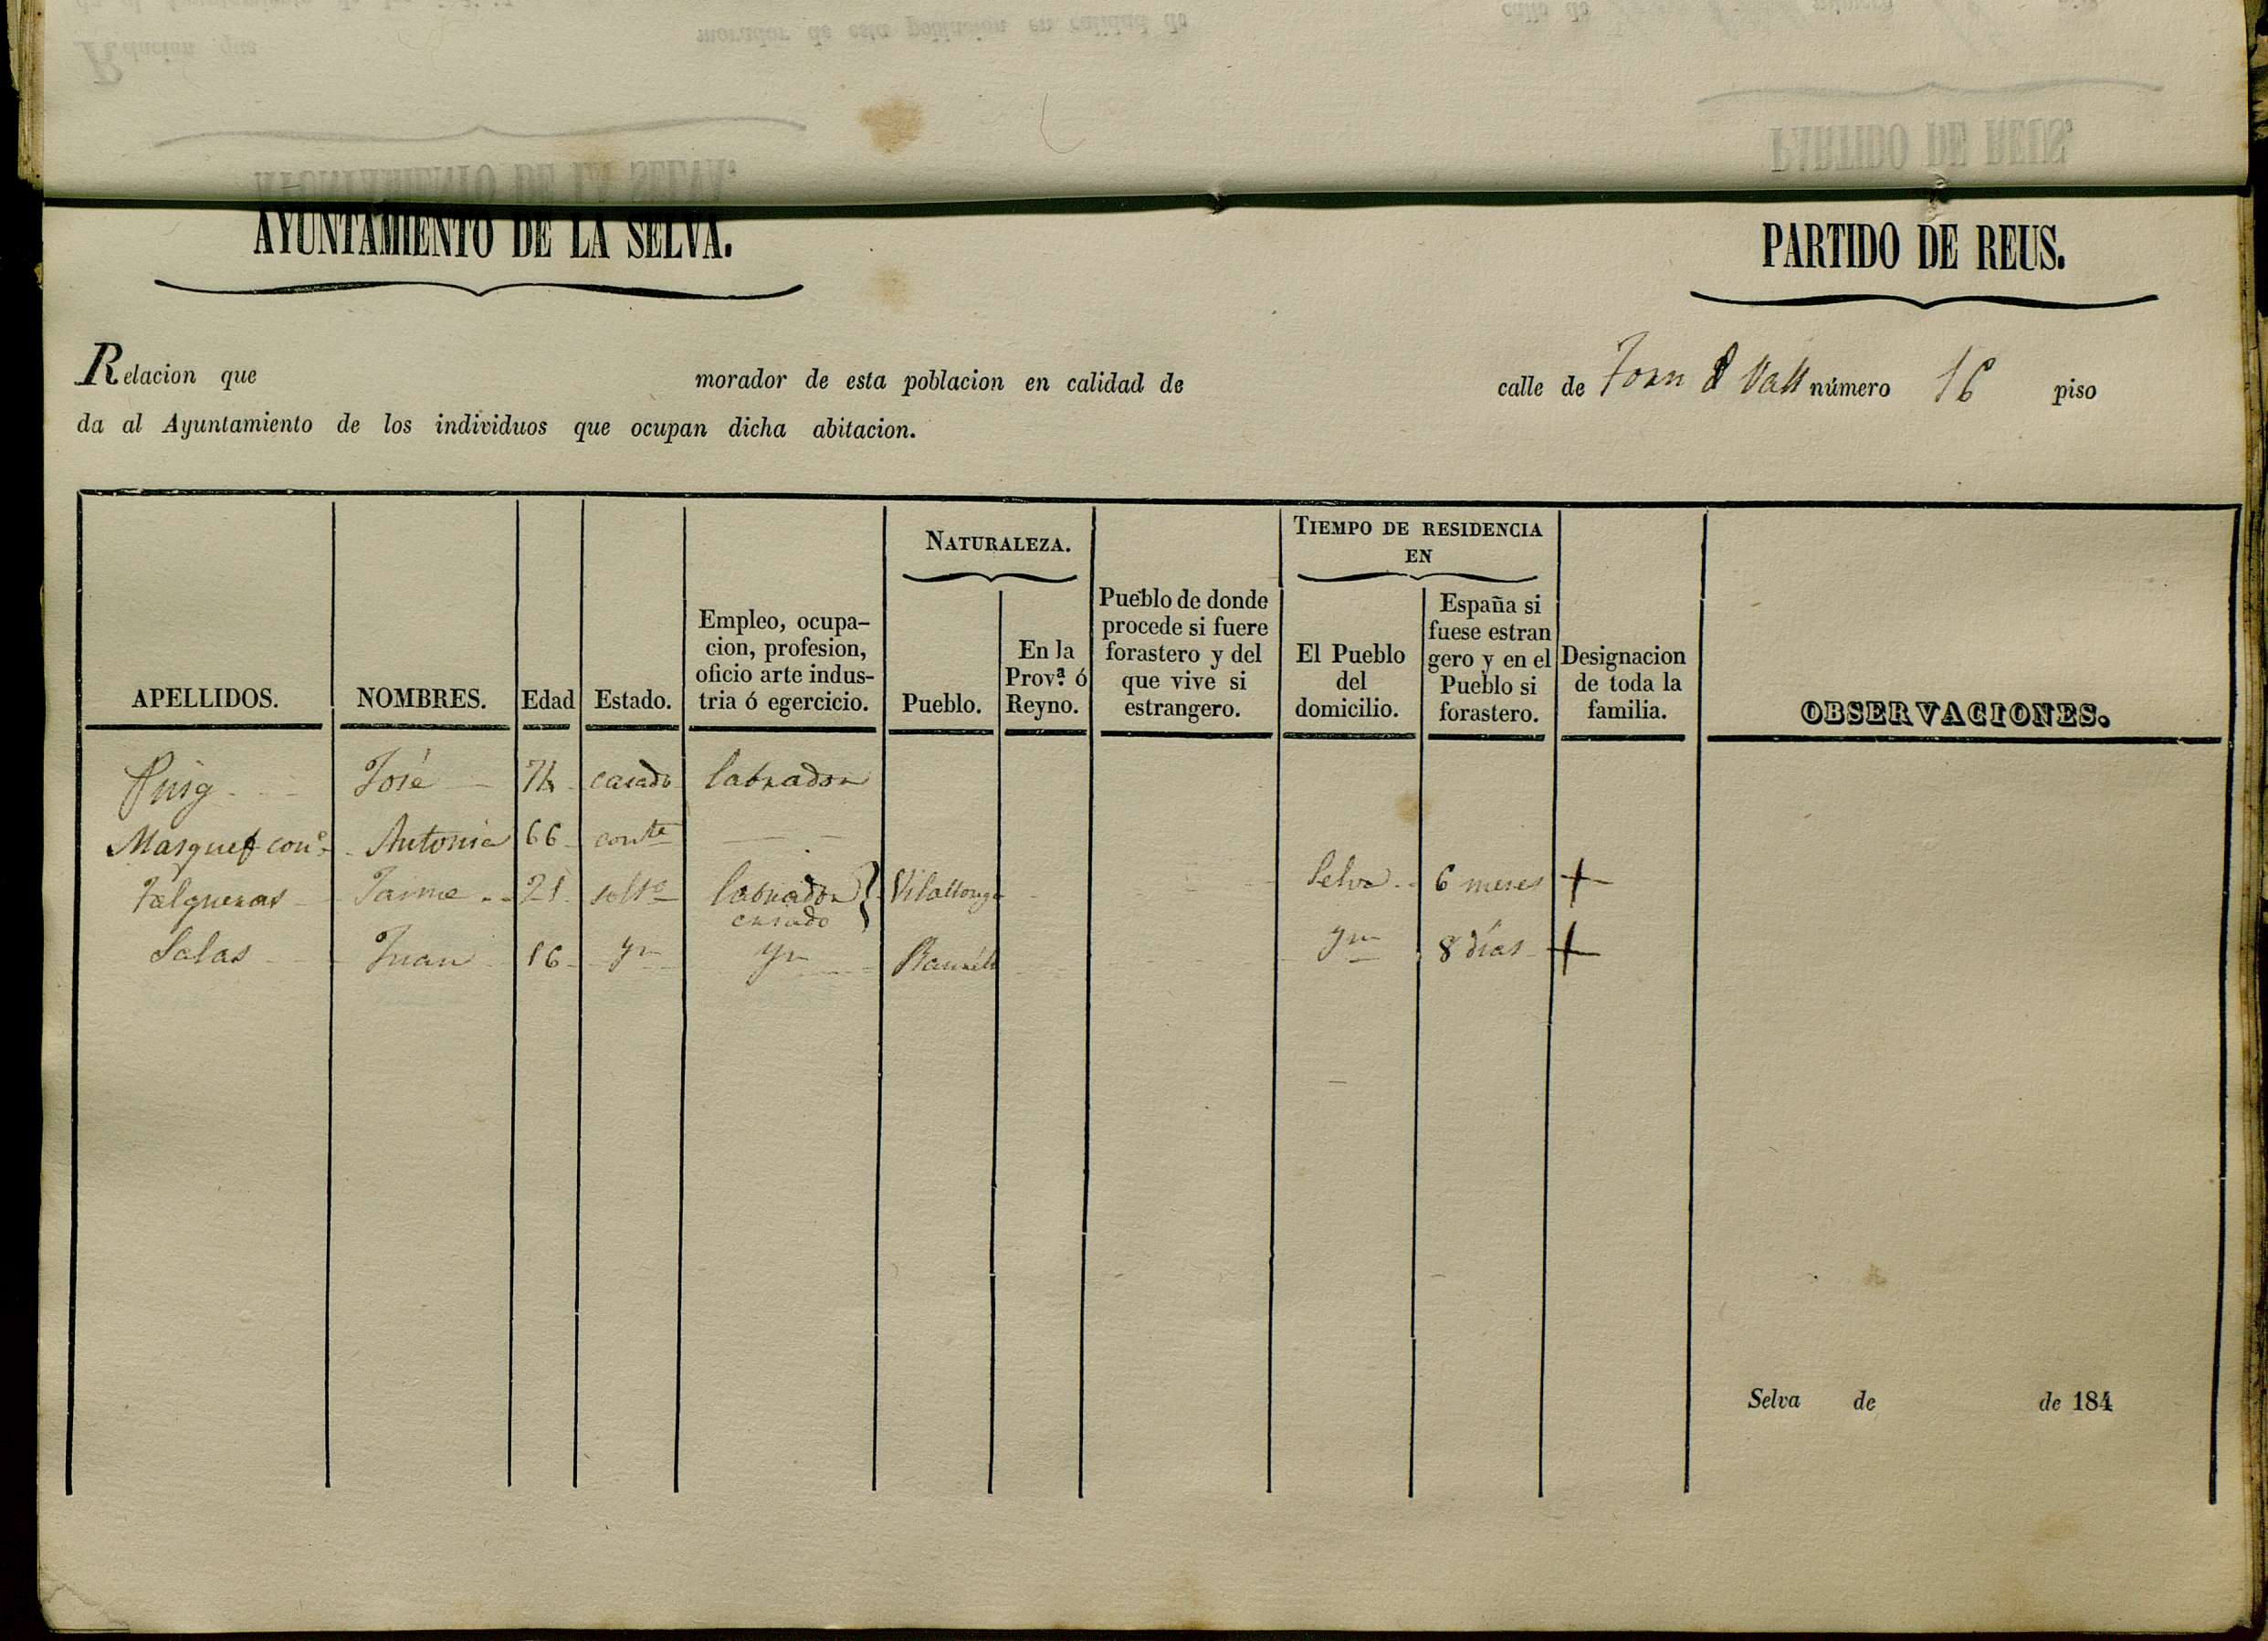 AYUNTAMIENTO DE LA SELVA.
PARTIDO DE REUS.
Relacion que morador de esta poblacion en calidad de calle de Forn d Vall número 16 piso
da al Ayuntamiento de los individuos que ocupan dicha abitacion.
APELLIDOS.
NOMBRES.
Edad
Estado.
Empleo, ocupa-
cion, profesion,
oficio arte indus-
tria ó egercicio.
NATURALEZA.
Pueblo.
En la
Prov.ª ó
Reyno.
Pueblo de donde
procede si fuere
forastero y del
que vive si
estrangero.
TIEMPO DE RESIDENCIA
EN
El Pueblo
del
domicilio.
España si
fuese estran
gero y en el
Pueblo si
forastero.
Designacion
de toda la
familia.
OBSERVACIONES.
Puig José casado labrador
Antonia 66
Falgueras Jaime 21 labrador } Vilallonga Selva 6 meses +
criado
Salas Juan 16 Yn Yn Yn 8 días +
Selva de de 184